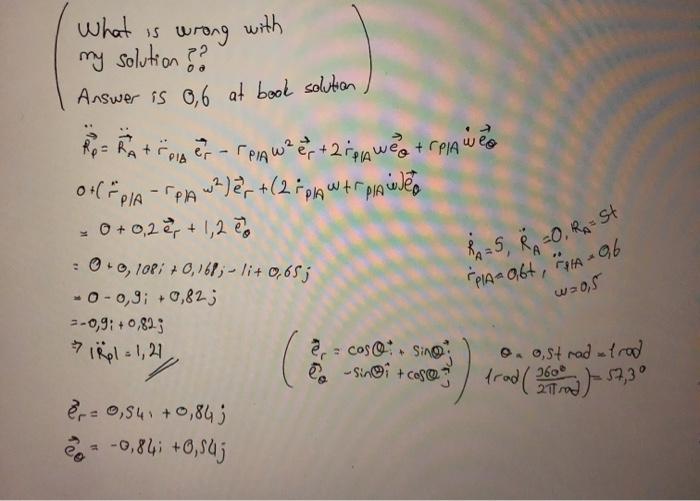 What is wrong with
my solution ??
Answer is 0,6 at book solution
R̈⃗p = R̈⃗A + r̈P/A e⃗r - rP/A w² e⃗r + 2ṙP/A w e⃗θ + rP/A ẇ e⃗θ
0+(r̈P/A - rP/A w²)e⃗r + (2ṙP/A w + rP/A ẇ)e⃗θ
= 0 + 0,2 e⃗r + 1,2 e⃗θ
= 0 + 0,108i + 0,168j - 1i + 0,65j
= 0 - 0,9i + 0,82j
= -0,9i + 0,82j
⇒ |R̈p| = 1,21
ṘA = 5, R̈A = 0, RA = 5t
ṙP/A = 0,6t, r̈P/A = 0,6
w = 0,5
e⃗r = cosθi + sinθj
e⃗θ -sinθi + cosθj
θ = 0,5t rad = 1 rad
1 rad (360°/2π rad) = 57,3°
e⃗r = 0,54i + 0,84j
e⃗θ = -0,84i + 0,54j